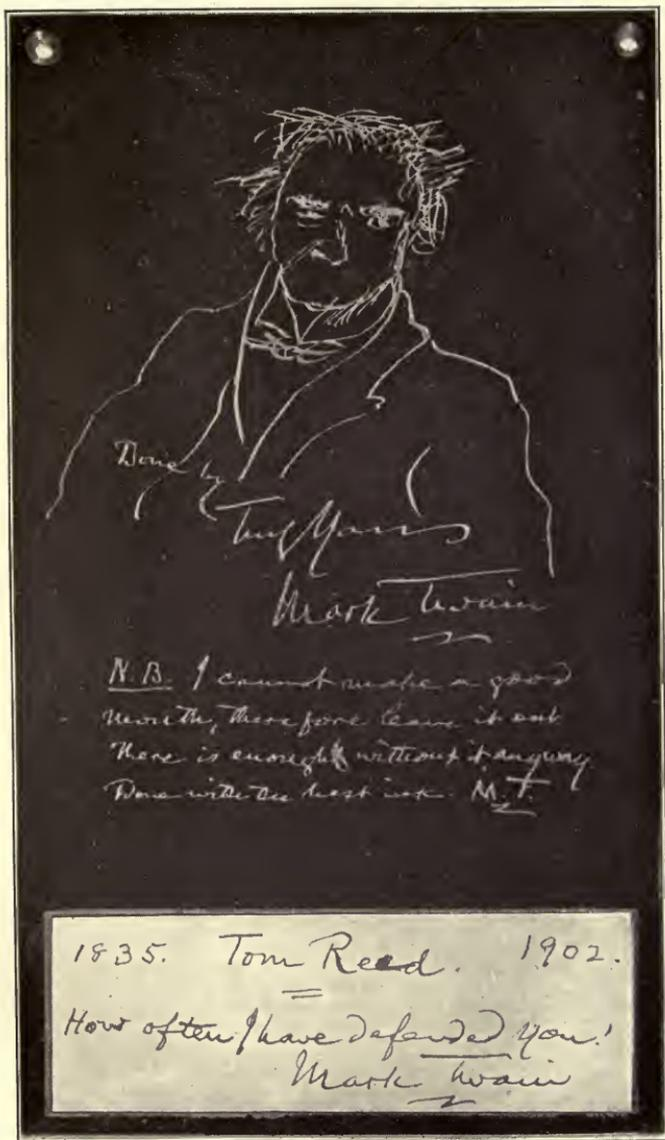 Done by
Truly Yours
Mark Twain
N.B. I cannot make a good
mouth, therefore leave it out
There is enough without it anyway
Done with the best ink. M.T.
1835. Tom Reed. 1902.
How often I have defended you!
Mark Twain